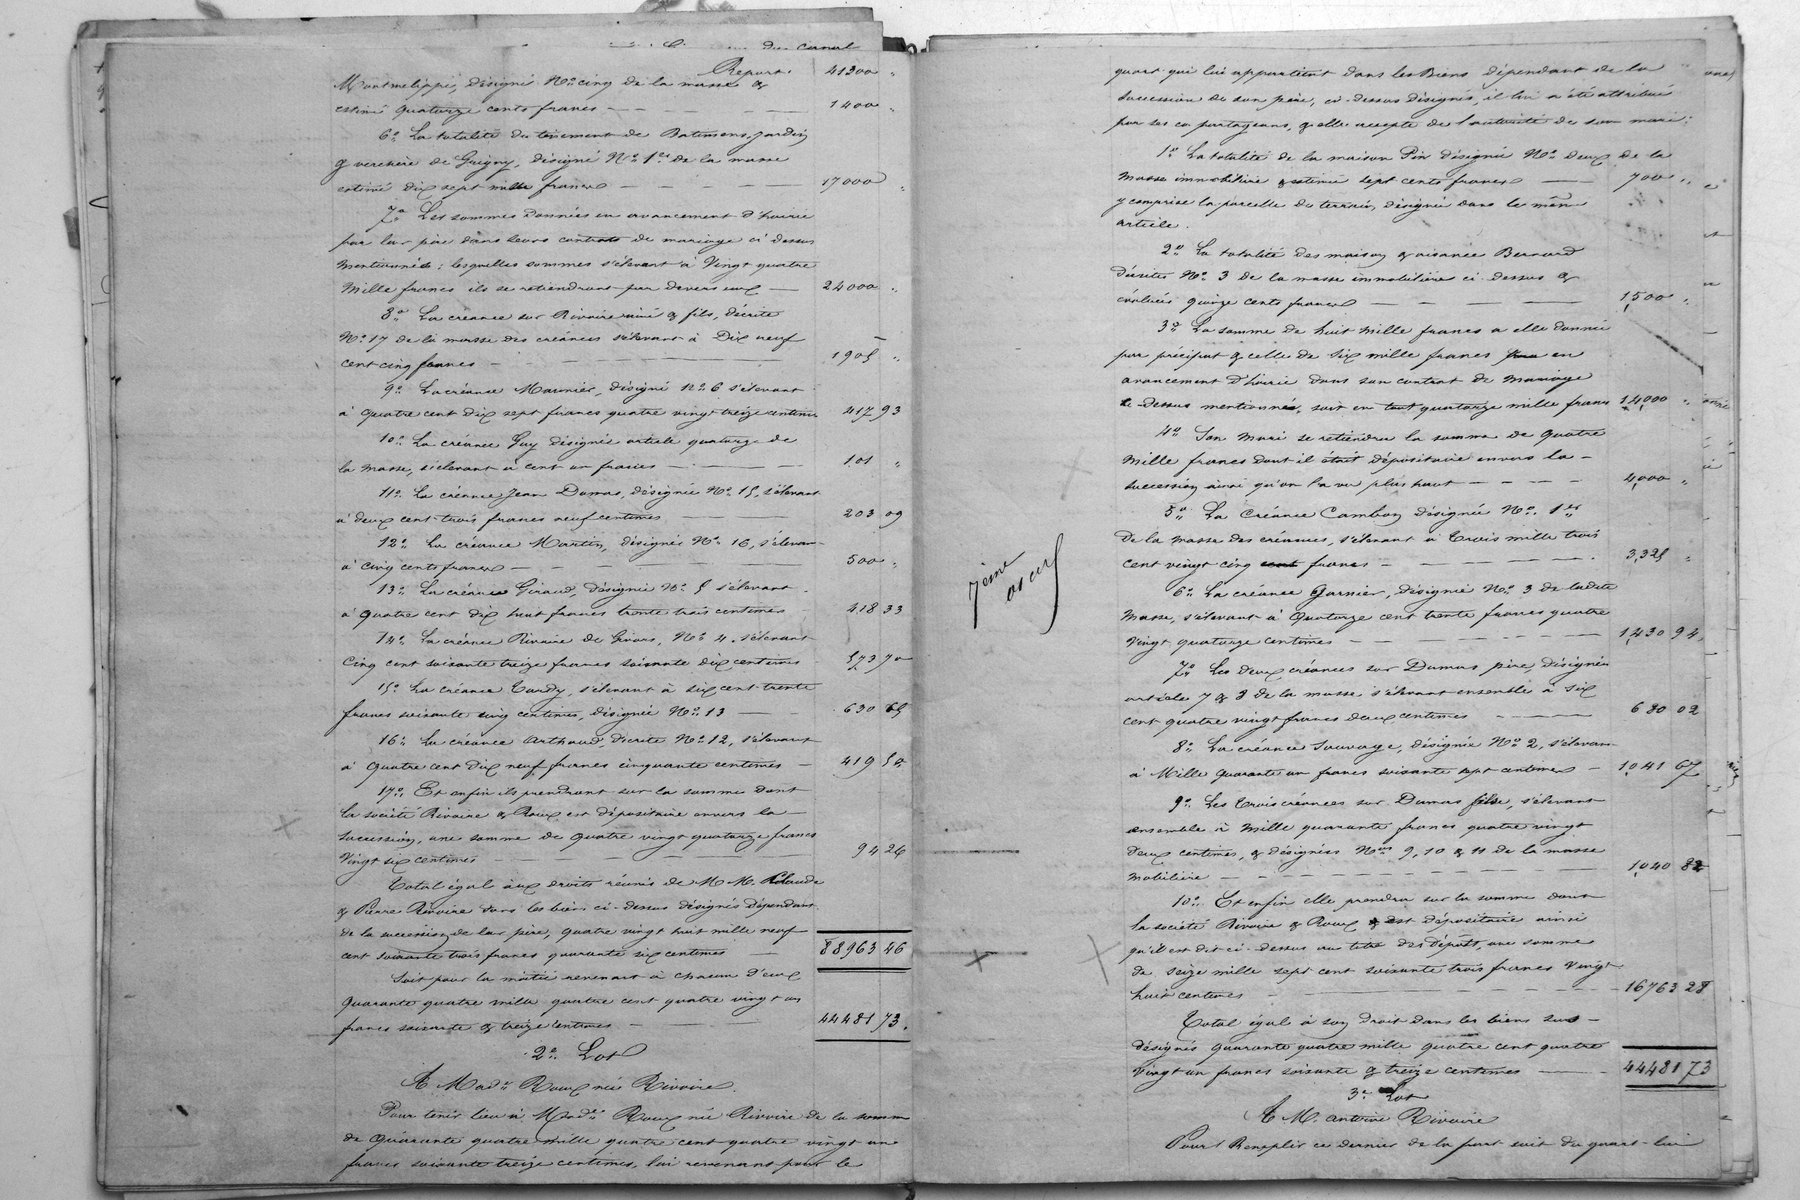 du canal
Report. 41300 "
Montmelippe, désigné No. cinq de la masse &
estimé quatorze cents francs — 1400 "
6o. La totalité du tènement de Batimens, Jardin,
& verchère de Grigny, désigné No. 1er de la masse
estimé dix sept mille francs — 17000 "
7o. Les sommes données en avancement d'hoirie
par leur père dans leurs contrats de mariage ci dessus
mentionnés; lesquelles sommes s'élevant à Vingt quatre
Mille francs ils se retiendront par devers eux — 24000 "
8o. La créance sur Rivoire ainé & fils, décrite
No. 17 de la masse des créances s'élevant à Dix neuf
cent cinq francs — 1905 "
9o. La créance Maunier, désigné No. 6 s'élevant
à quatre cent dix sept francs quatre vingt treize centimes 417 93
10o. La créance Guy désignée article quatorze de
la masse, s'élevant à cent un francs — 101 "
11o. La créance Jean Dumas, désignée No. 15, s'élevant
à deux cent trois francs neuf centimes — 203 09
12o. La créance Martin, désignée No. 16, s'élevant
à cinq cents francs — 500 "
13o. La créance Giraud, désignée No. 5 s'élevant
à quatre cent dix huit francs trente trois centimes 418 33
14o. La créance Rivoire de Givors, No. 4, s'élevant
cinq cent soixante treize francs soixante dix centimes 573 70
15o. La créance Tardy, s'élevant à six cent trente
francs soixante cinq centimes, désignée No. 13 — 630 65
16o. La créance Arthaud, décrite No. 12, s'élevant
à quatre cent dix neuf francs cinquante centimes — 419 50
17o. Et enfin ils prendront sur la somme dont
la société Rivoire & Roux est dépositaire envers la
succession, une somme de quatre vingt quatorze francs
Vingt six centimes — 94 26
Total égal aux droits réunis de M M. Claude
& Pierre Rivoire dans les biens ci-dessus désignés dépendant
de la succession de leur père, quatre vingt huit mille neuf
cent soixante trois francs quarante six centimes — 88963 46
Soit pour la moitié revenant à chacun d'eux
quarante quatre mille quatre cent quatre vingt un
francs soixante & treize centimes — 44481 73.
2o. Lot
A Made. Roux née Rivoire.
Pour tenir lieu à Made. Roux née Rivoire de la somme
de quarante quatre mille quatre cent quatre vingt un
francs soixante treize centimes, lui revenant pour le
quart qui lui appartient dans les Biens dépendant de la
succession de son père, ci-dessus désignés, il lui a été attribué
par ses co partageans, & elle accepte de l'autorité de son mari:
1o. La totalité de la maison Pin désignée No. deux de la
Masse immobilière & estimée sept cents francs — 700 "
y comprise la parcelle de terrain, désignée dans le même
article.
2o. La totalité des maison & aisance Bernard
décrites No. 3 de la masse immobilière ci-dessus &
évaluées quinze cents francs — 1,500 "
3o. La somme de huit mille francs a elle donnée
par préciput & celle de six mille francs en
avancement d'hoirie dans son contrat de Mariage
ci-dessus mentionné, soit en tout quatorze mille francs 14,000 "
4o. Son Mari se retiendra la somme de quatre
Mille francs dont il était dépositaire envers la
succession ainsi qu'on l'a vu plus haut — 4,000 "
5o. La Créance Cambon désignée No. 1er
De la masse des créances, s'élevant à Trois mille trois
cent vingt cinq francs — 3,325 "
6o. La créance Garnier, désignée No. 3 de ladite
Masse, s'élevant à Quatorze cent trente francs quatre
Vingt quatorze centimes — 1,430 94
7o. Les deux créances sur Dumas père, désignées
article 7 & 8 de la masse s'élevant ensemble à six
cent quatre vingt francs deux centimes — 680 02
8o. La créance Sauvage, désignée No. 2, s'élevant
à Mille quarante un francs soixante sept centimes — 1041 67
9o. Les Trois créances sur Dumas fils, s'élevant
ensemble à Mille quarante francs quatre vingt
deux centimes, & désignées Nos. 9, 10 & 11 de la masse
mobilière — 1,040 82
10o. Et enfin elle prendra sur la somme dont
la société Rivoire & Roux est dépositaire ainsi
qu'il est dit ci-dessus au titre des Dépôts, une somme
de seize mille sept cent soixante trois francs vingt
huit centimes — 16763 28
Total égal à son droit dans les biens sus-
désignés quarante quatre mille quatre cent quatre
vingt un francs soixante & treize centimes — 44481 73
3o. Lot
A M. Antoine Rivoire
Pour Remplir ce dernier de la part soit du quart lui
7eme